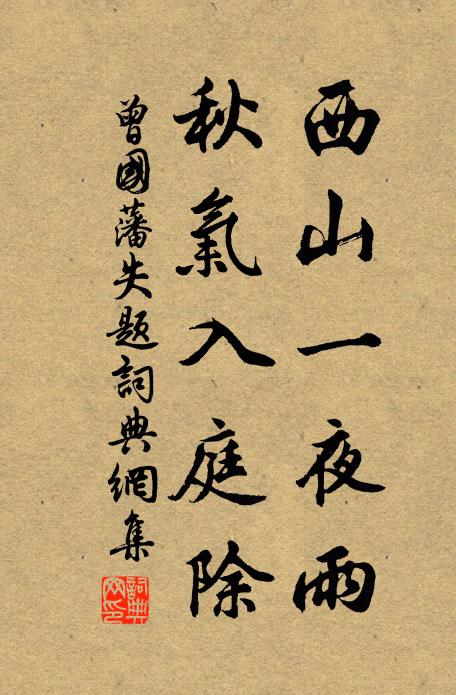 西山一夜雨
秋氣入庭除
曾國藩失題詞典網集
詞典网印